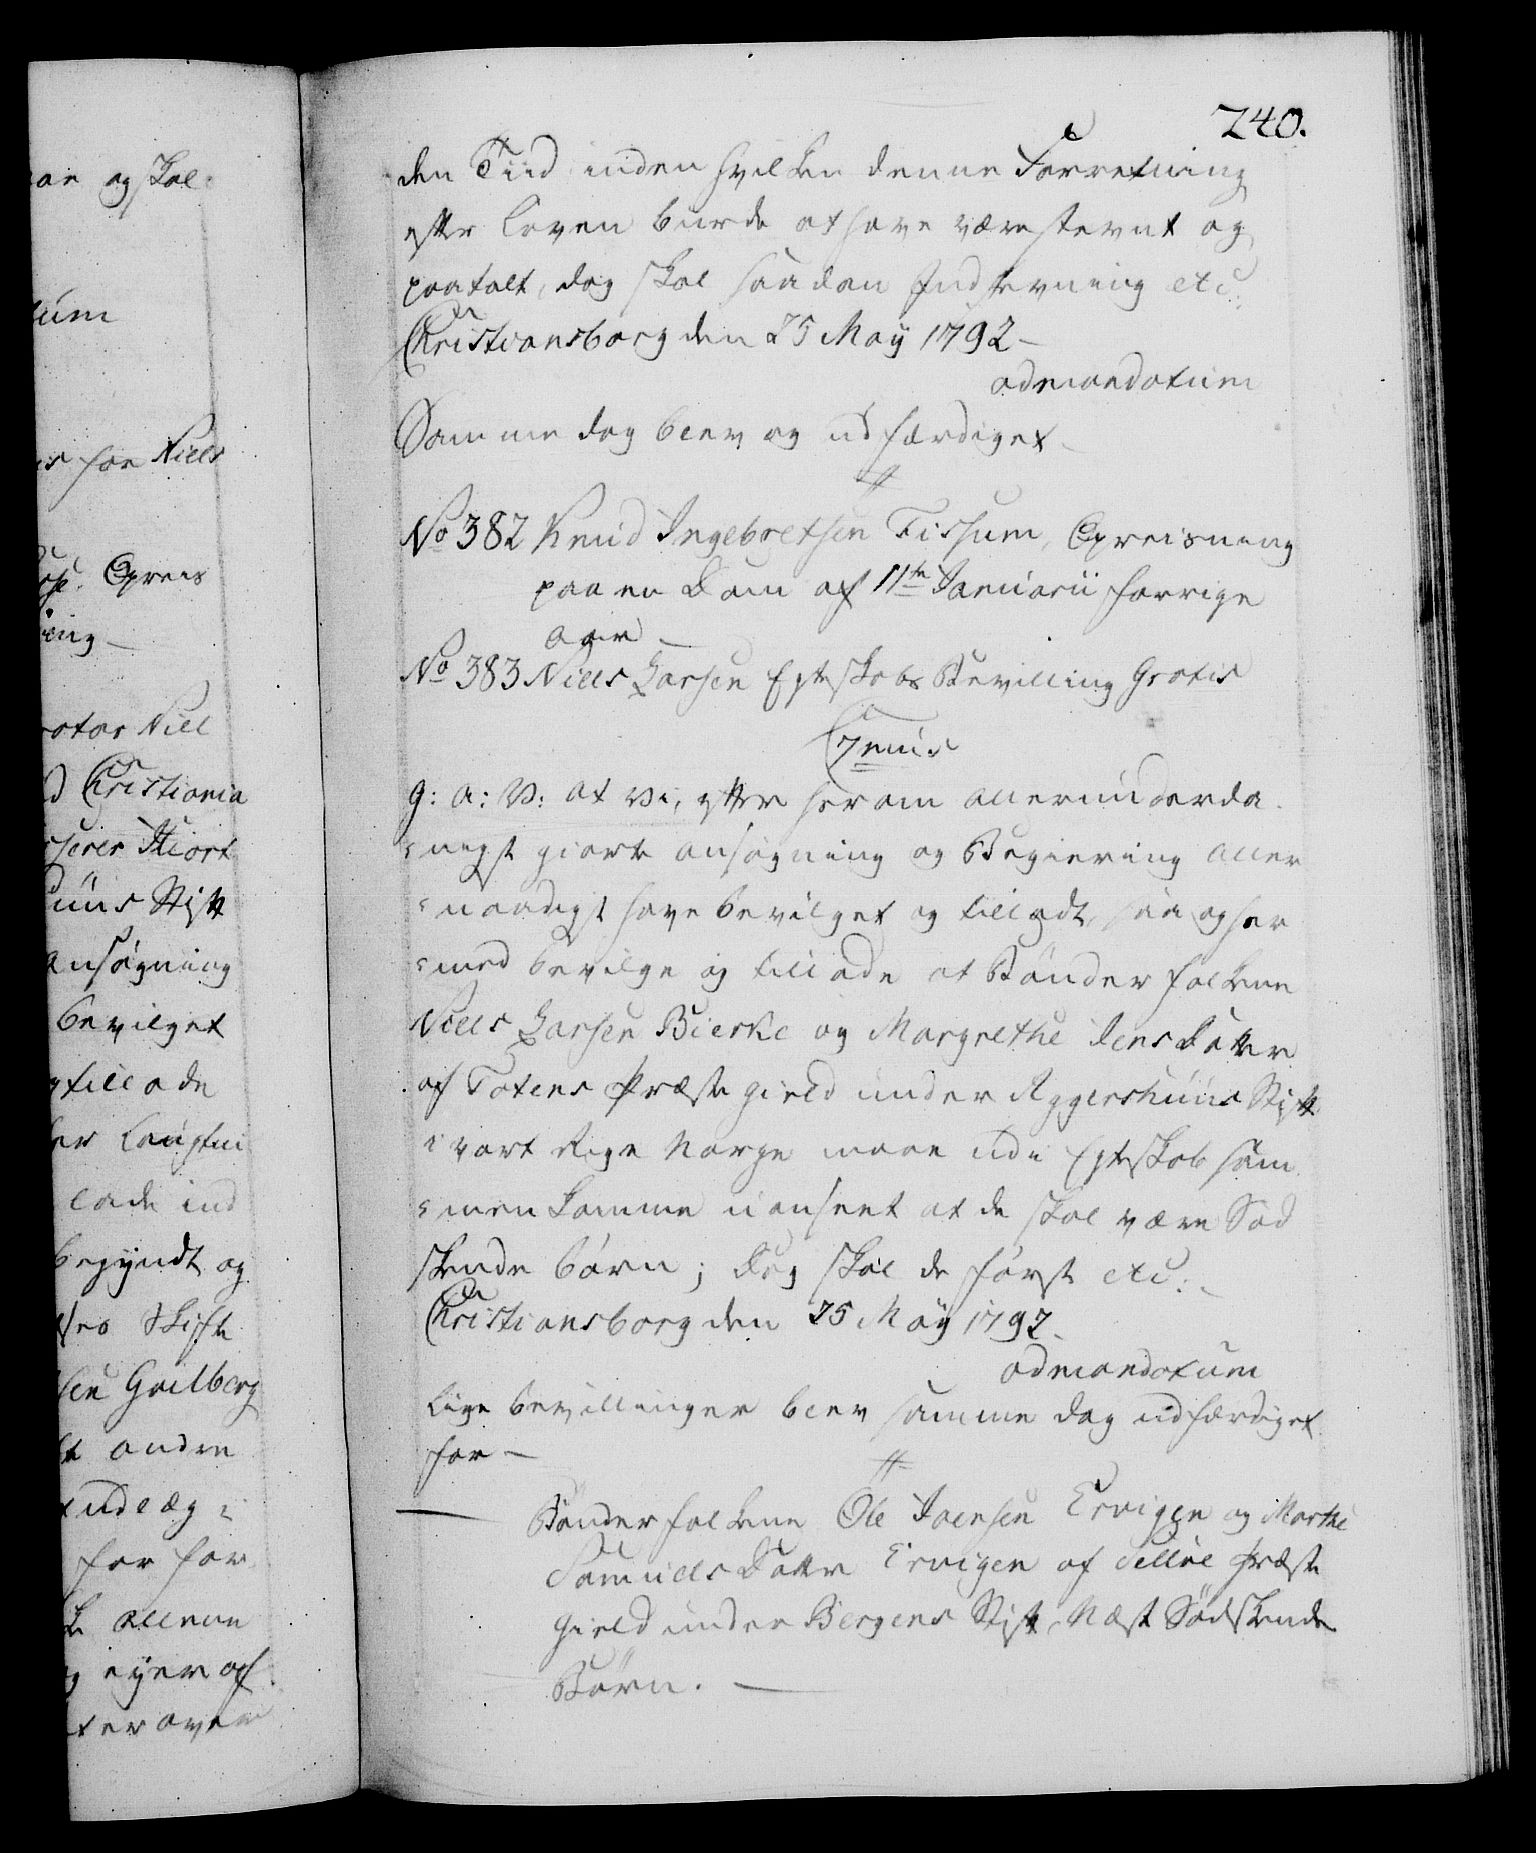 240.
den Tiid inden hvilken denne Forretning
efter Loven burde at have være stevnt og
paatalt, dog skal saadan Indstevning etc:
Christiansborg den 25 May 1792 –
ad mandatum
Samme dag blev og udfærdiget
No 382 Knud Ingebretsen Fissum, Opreisning
paa en Dom af 11te Januarii forrige
Aar –
No 383 Niels Larsen Egteskabs Bevilling Gratis
C7mus
G: A: V: at vi, efter herom allerunderda-
-nigst giorte ansøgning og Begiering aller
-naadigst have bevilget og tilladt, saa og her
-med bevilge og tillade at Bønder folkene
Niels Larsen Bierke og Margrethe Jens Datter
af Totens Præste gield under Aggershuus Stift
i vort Rige Norge maae udi Egteskab sam
-men komme uanseet at de skal være Sød
skende børn; Dog skal de først etc:
Christiansborg den 25 May 1792
ad mandatum
Lige bevillinger blev samme dag udfærdiget
for –
Bønder folkene Ole Joensen Ervigen og Marthe
Samuels Datter Ervigen af Selløe Præste
Gield under Bergens Stift, Næst Sødskende
Børn. –
aar og skal
um
for Niels
Opreis
ing –
Niel
Christiania
Hiort
huus Stift
Ansøgning
bevilget
og tillade
lade ind
begyndt og
Skifte
sen Guilberg
andre
udlæg
for for
allene
og eyer af